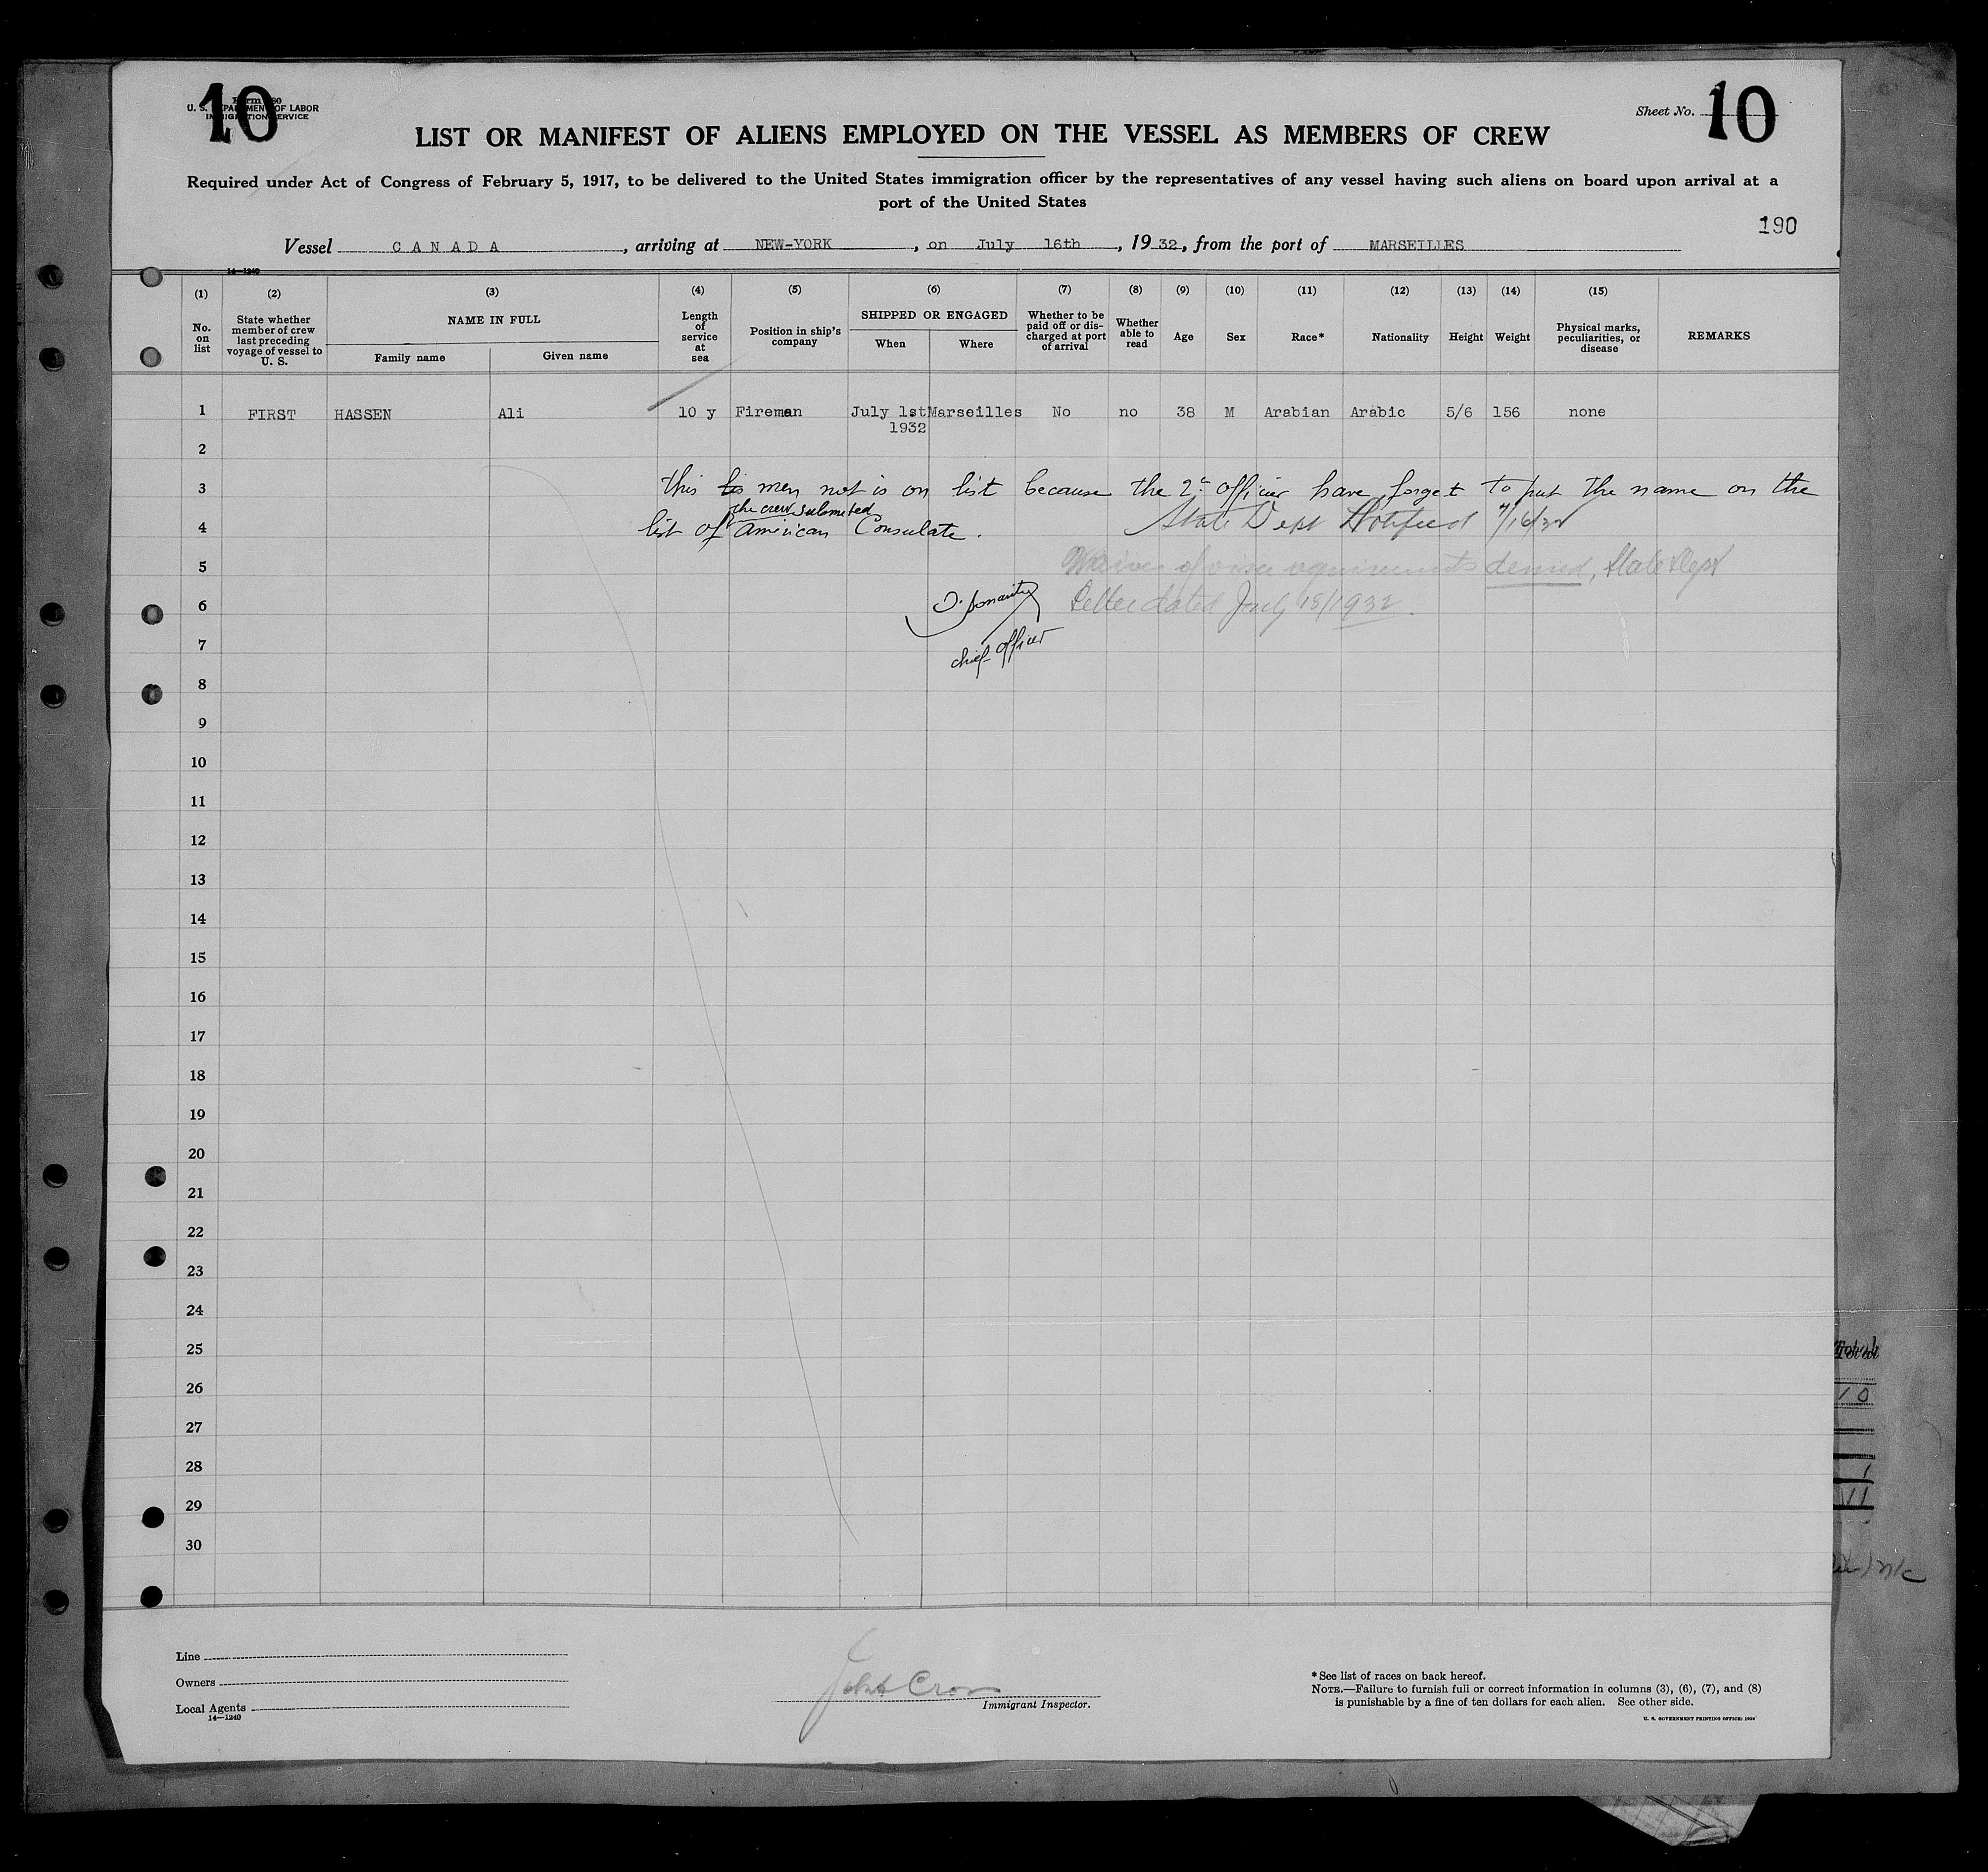 10
Form 680
U. S. DEPARTMENT OF LABOR
IMMIGRATION SERVICE
Sheet No. 10
LIST OR MANIFEST OF ALIENS EMPLOYED ON THE VESSEL AS MEMBERS OF CREW
Required under Act of Congress of February 5, 1917, to be delivered to the United States immigration officer by the representatives of any vessel having such aliens on board upon arrival at a
port of the United States
190
Vessel CANADA, arriving at NEW-YORK, on July 16th, 1932, from the port of MARSEILLES
14—1240
(1) (2) (3) (4) (5) (6) (7) (8) (9) (10) (11) (12) (13) (14) (15)
No. on list
State whether member of crew last preceding voyage of vessel to U. S.
NAME IN FULL
Family name
Given name
Length of service at sea
Position in ship's company
SHIPPED OR ENGAGED
When
Where
Whether to be paid off or discharged at port of arrival
Whether able to read
Age
Sex
Race*
Nationality
Height
Weight
Physical marks, peculiarities, or disease
REMARKS
1 FIRST HASSEN Ali 10 y Fireman July 1st Marseilles No no 38 M Arabian Arabic 5/6 156 none
1932
2
3 this his men not is on list because the 2d officier have forget to put the name on the
the crew submeted
4 list of american Consulate. State Dept Notified 7/16/32
5 Waiver of visa requirements denied, State Dept
6 Letter dated July 18/1932.
7 chief officer
8
9
10
11
12
13
14
15
16
17
18
19
20
21
22
23
24
25
26
27
28
29
30
Total
10
1
11
Line
Owners
Local Agents
14—1240
Immigrant Inspector.
*See list of races on back hereof.
NOTE.—Failure to furnish full or correct information in columns (3), (6), (7), and (8)
is punishable by a fine of ten dollars for each alien. See other side.